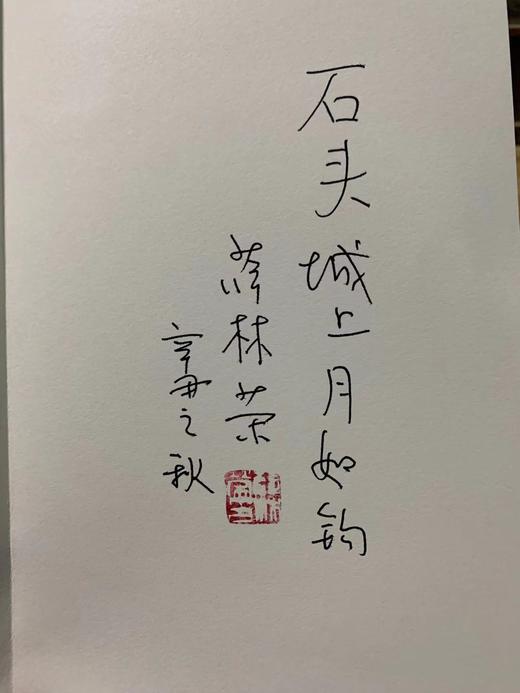 石头城上月如钩
薛林荣
辛丑之秋